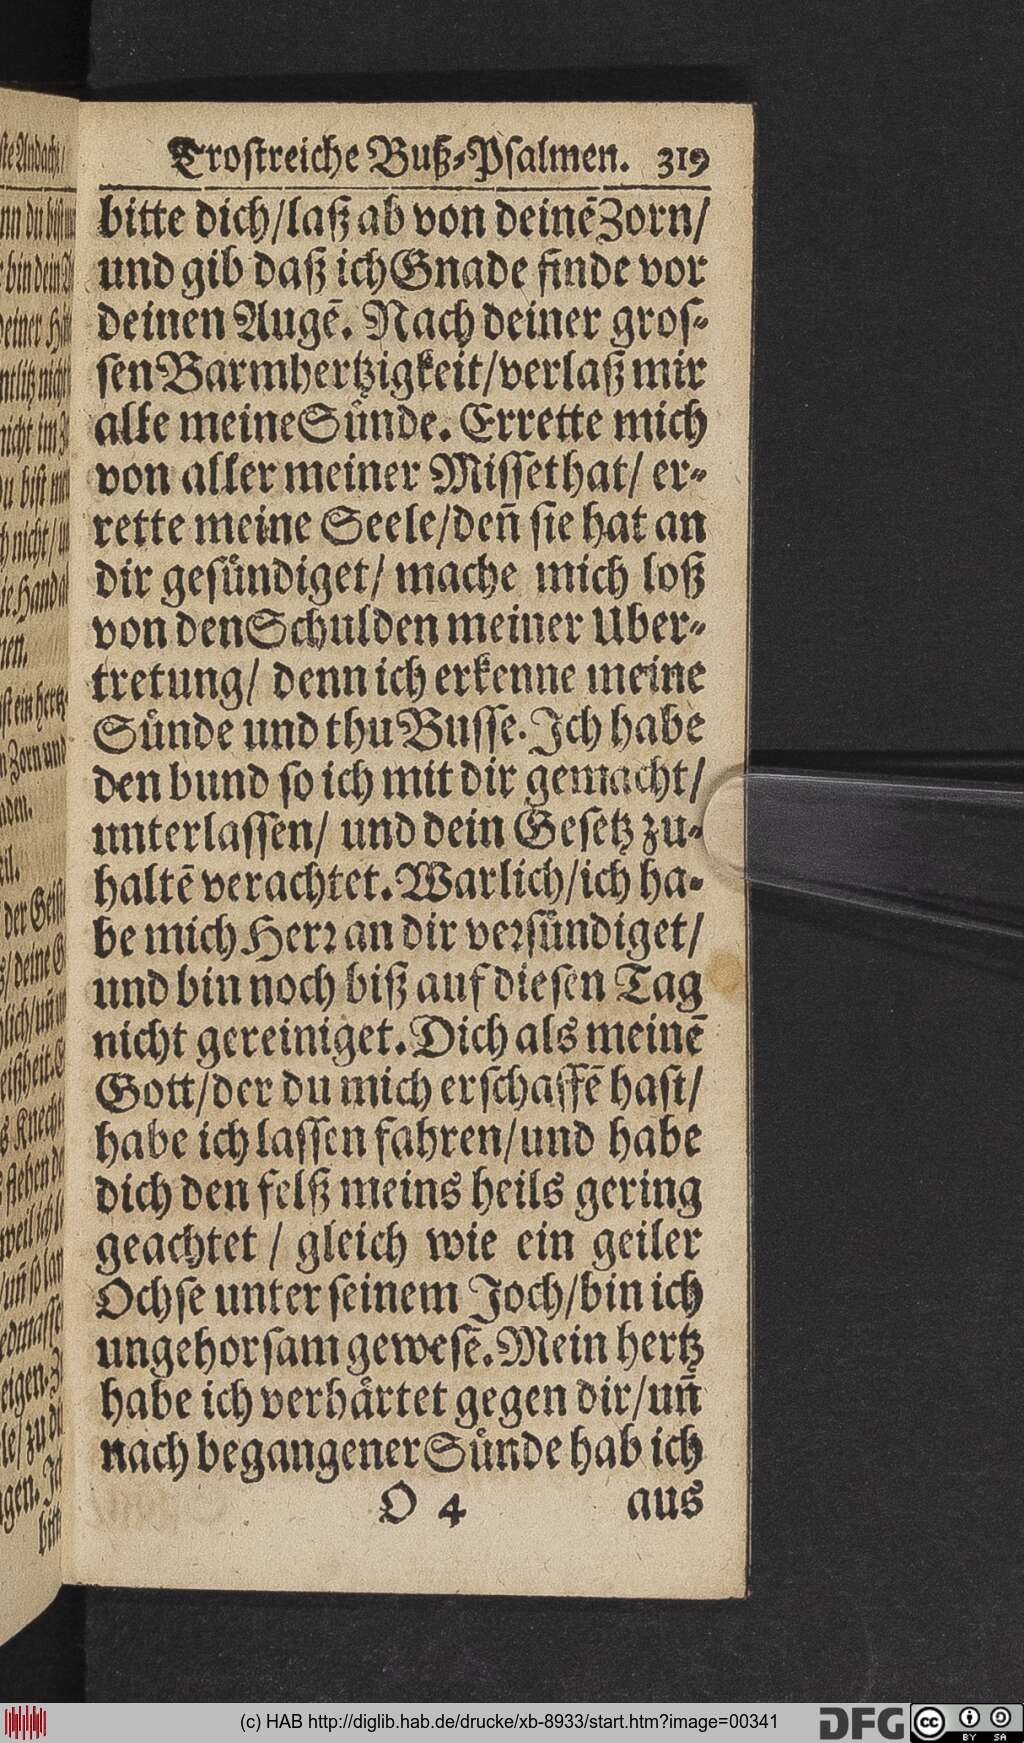 Trostreiche Buß-Psalmen. 319
bitte dich/laß ab von deinē Zorn/
und gib daß ich Gnade finde vor
deinen Augē. Nach deiner gros-
sen Barmhertzigkeit/verlaß mir
alle meine Sünde. Errette mich
von aller meiner Missethat/ er-
rette meine Seele/deñ sie hat an
dir gesündiget/ mache mich loß
von den Schulden meiner Uber-
tretung/ denn ich erkenne meine
Sünde und thu Busse. Ich habe
den bund so ich mit dir gemacht/
unterlassen/ und dein Gesetz zu-
haltē verachtet. Warlich/ich ha-
be mich Herr an dir versündiget/
und bin noch biß auf diesen Tag
nicht gereiniget. Dich als meinē
Gott/der du mich erschaffē hast/
habe ich lassen fahren/und habe
dich den felß meins heils gering
geachtet / gleich wie ein geiler
Ochse unter seinem Joch/bin ich
ungehorsam gewesē. Mein hertz
habe ich verhärtet gegen dir/uñ
nach begangener Sünde hab ich
O 4 aus
(c) HAB http://diglib.hab.de/drucke/xb-8933/start.htm?image=00341
DFG
cc BY SA